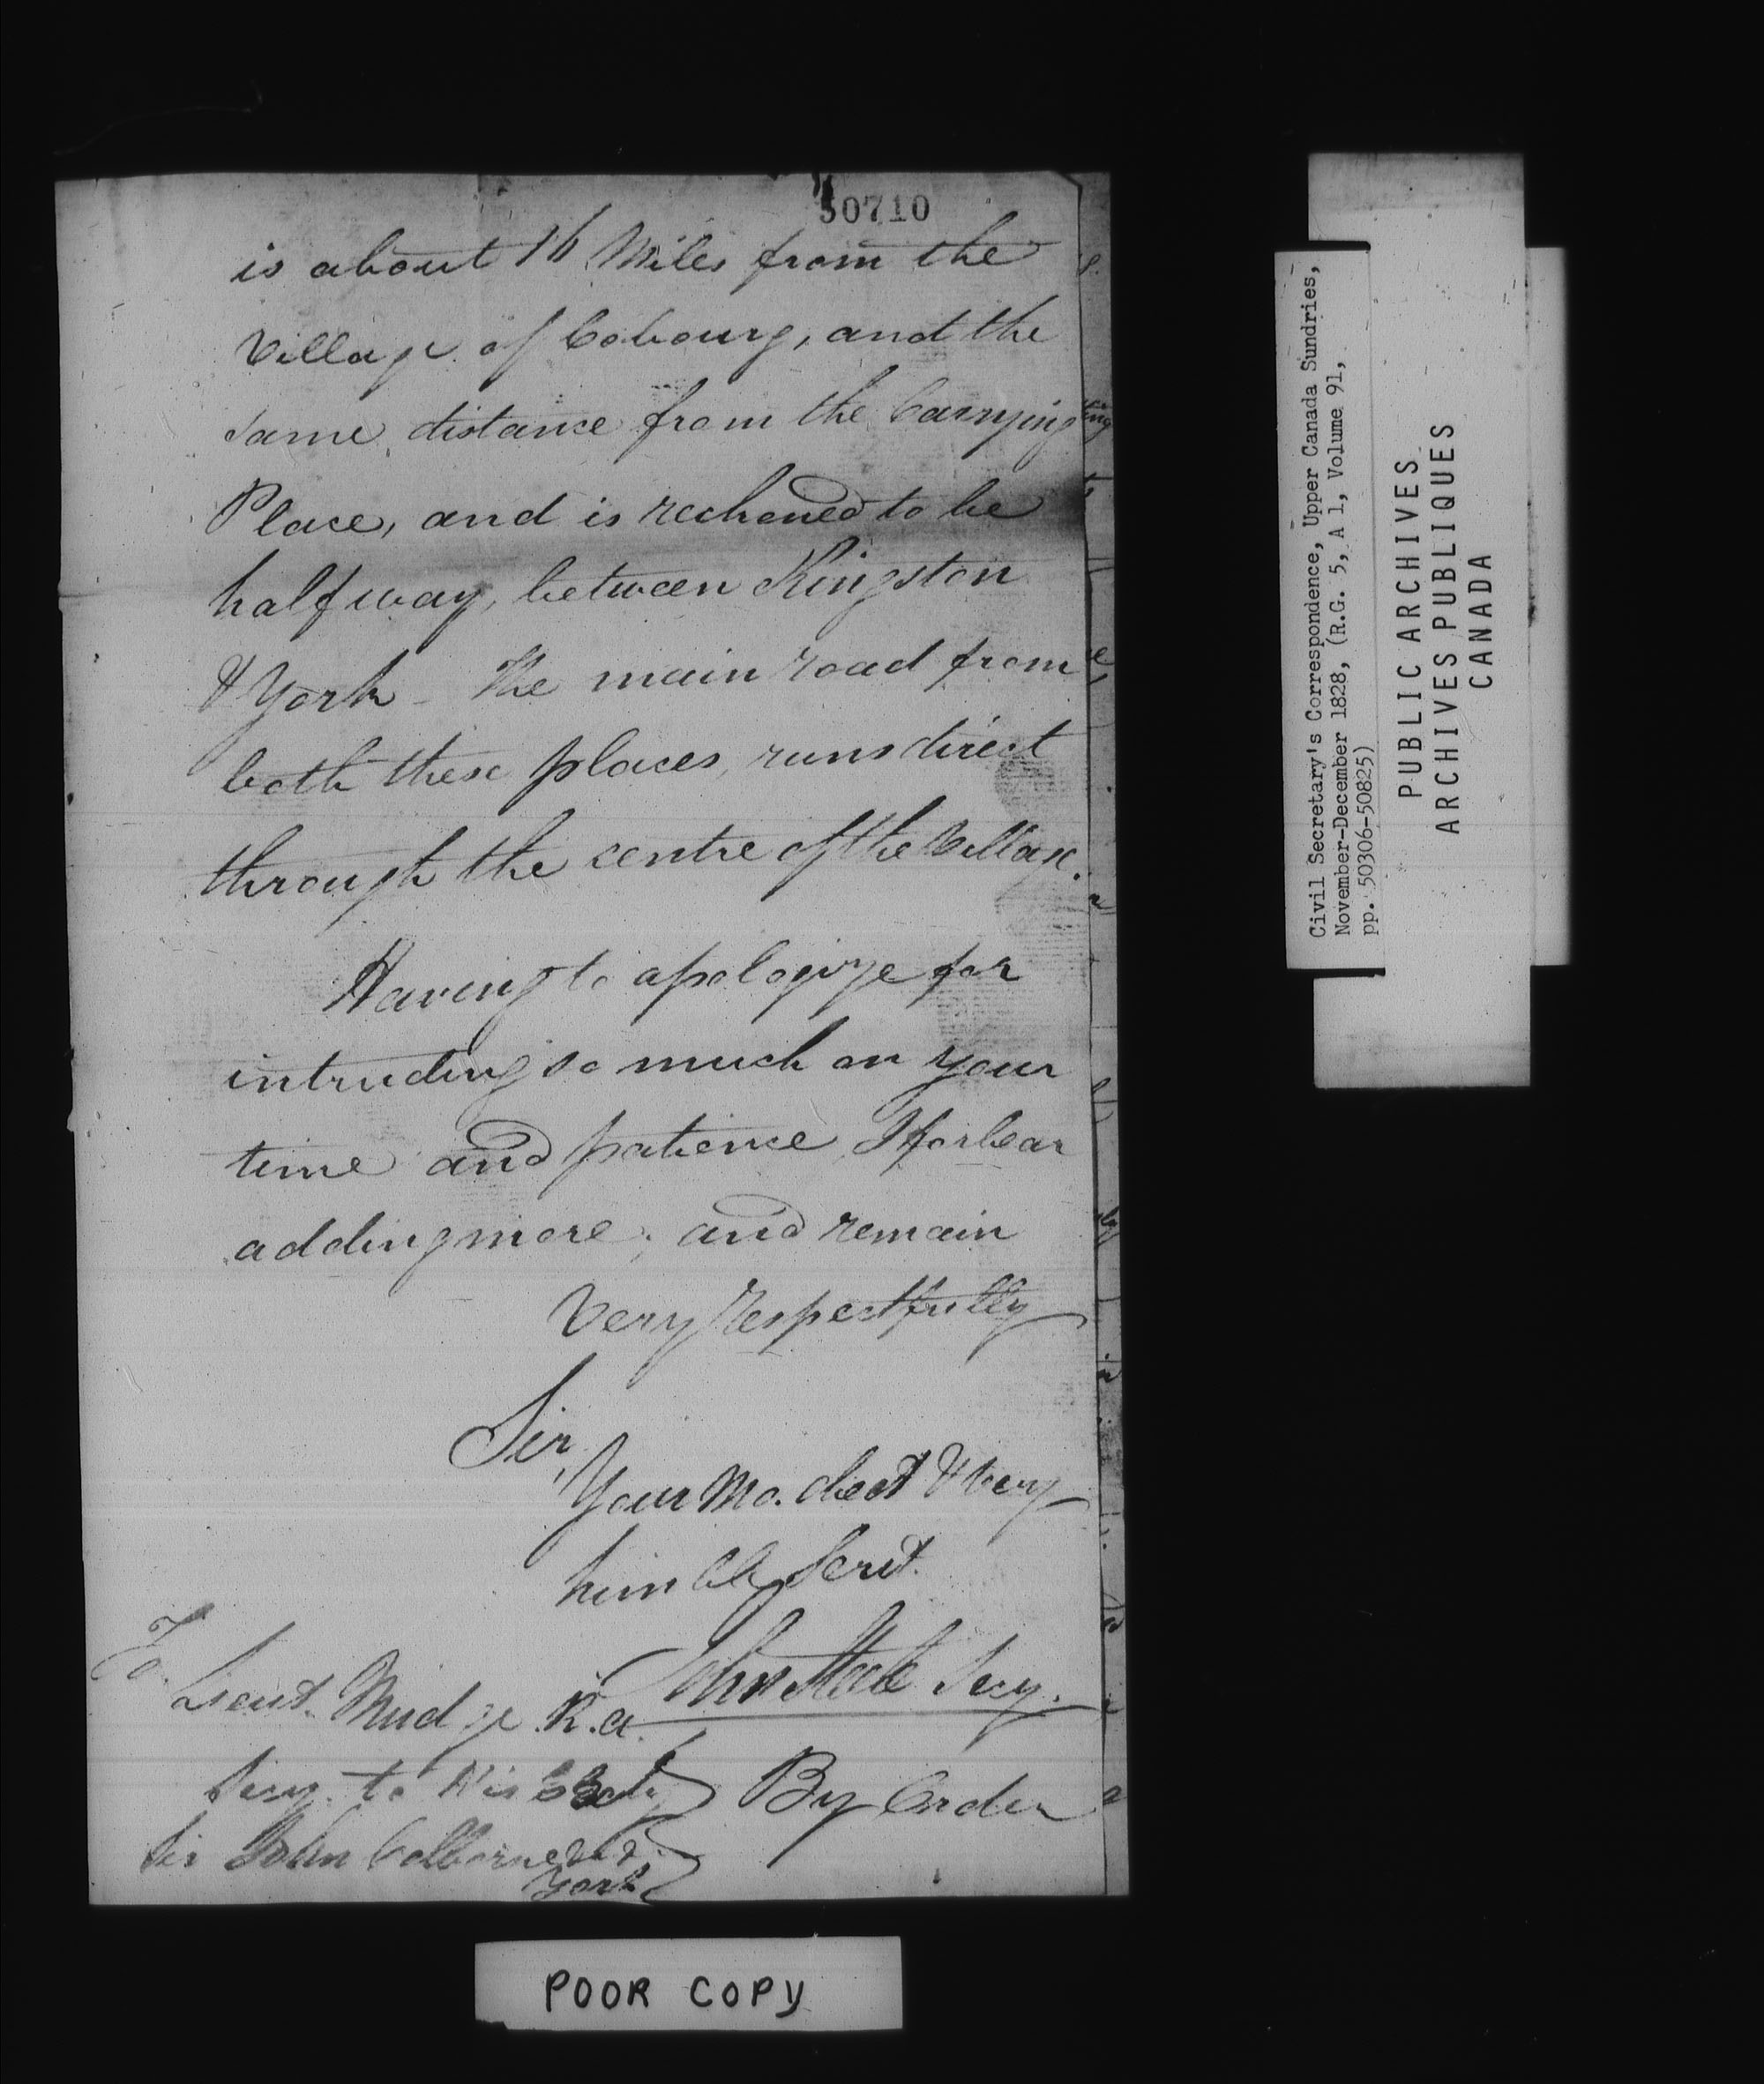 50710
is about 16 Miles from the
Village of Cobourg, and the
same distance from the Carrying
Place, and is reckoned to be
halfway, between Kingston
& York - The main road from
both these places, runs direct
through the centre of the Village.
Having to apologize for
intruding so much on your
time and patience, I forbear
adding more; and remain
Very Respectfully
Sir,
Your Mo. obedt & very
humble Servt.
John Steele Secy.
To
Lieut. Mudge R.
Secy. to His
Sir John Colborne
York
By Order
POOR COPY
Civil Secretary's Correspondence, Upper Canada Sundries,
November-December 1828, (R.G. 5, A 1, Volume 91,
pp. 50306-50825)
PUBLIC ARCHIVES
ARCHIVES PUBLIQUES
CANADA